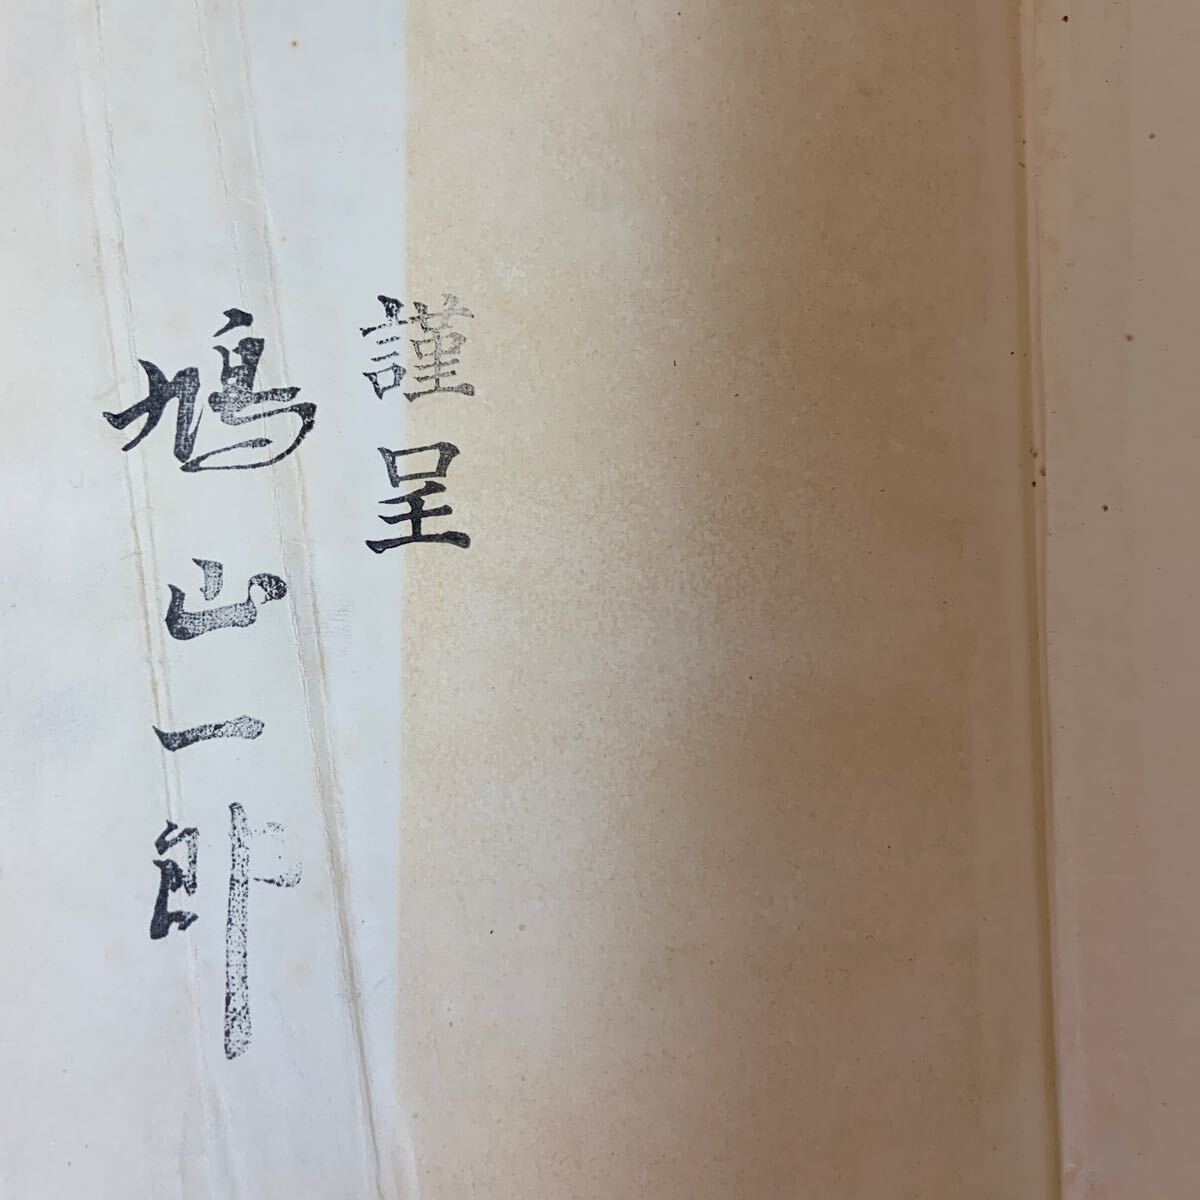 謹呈
鳩山一郎